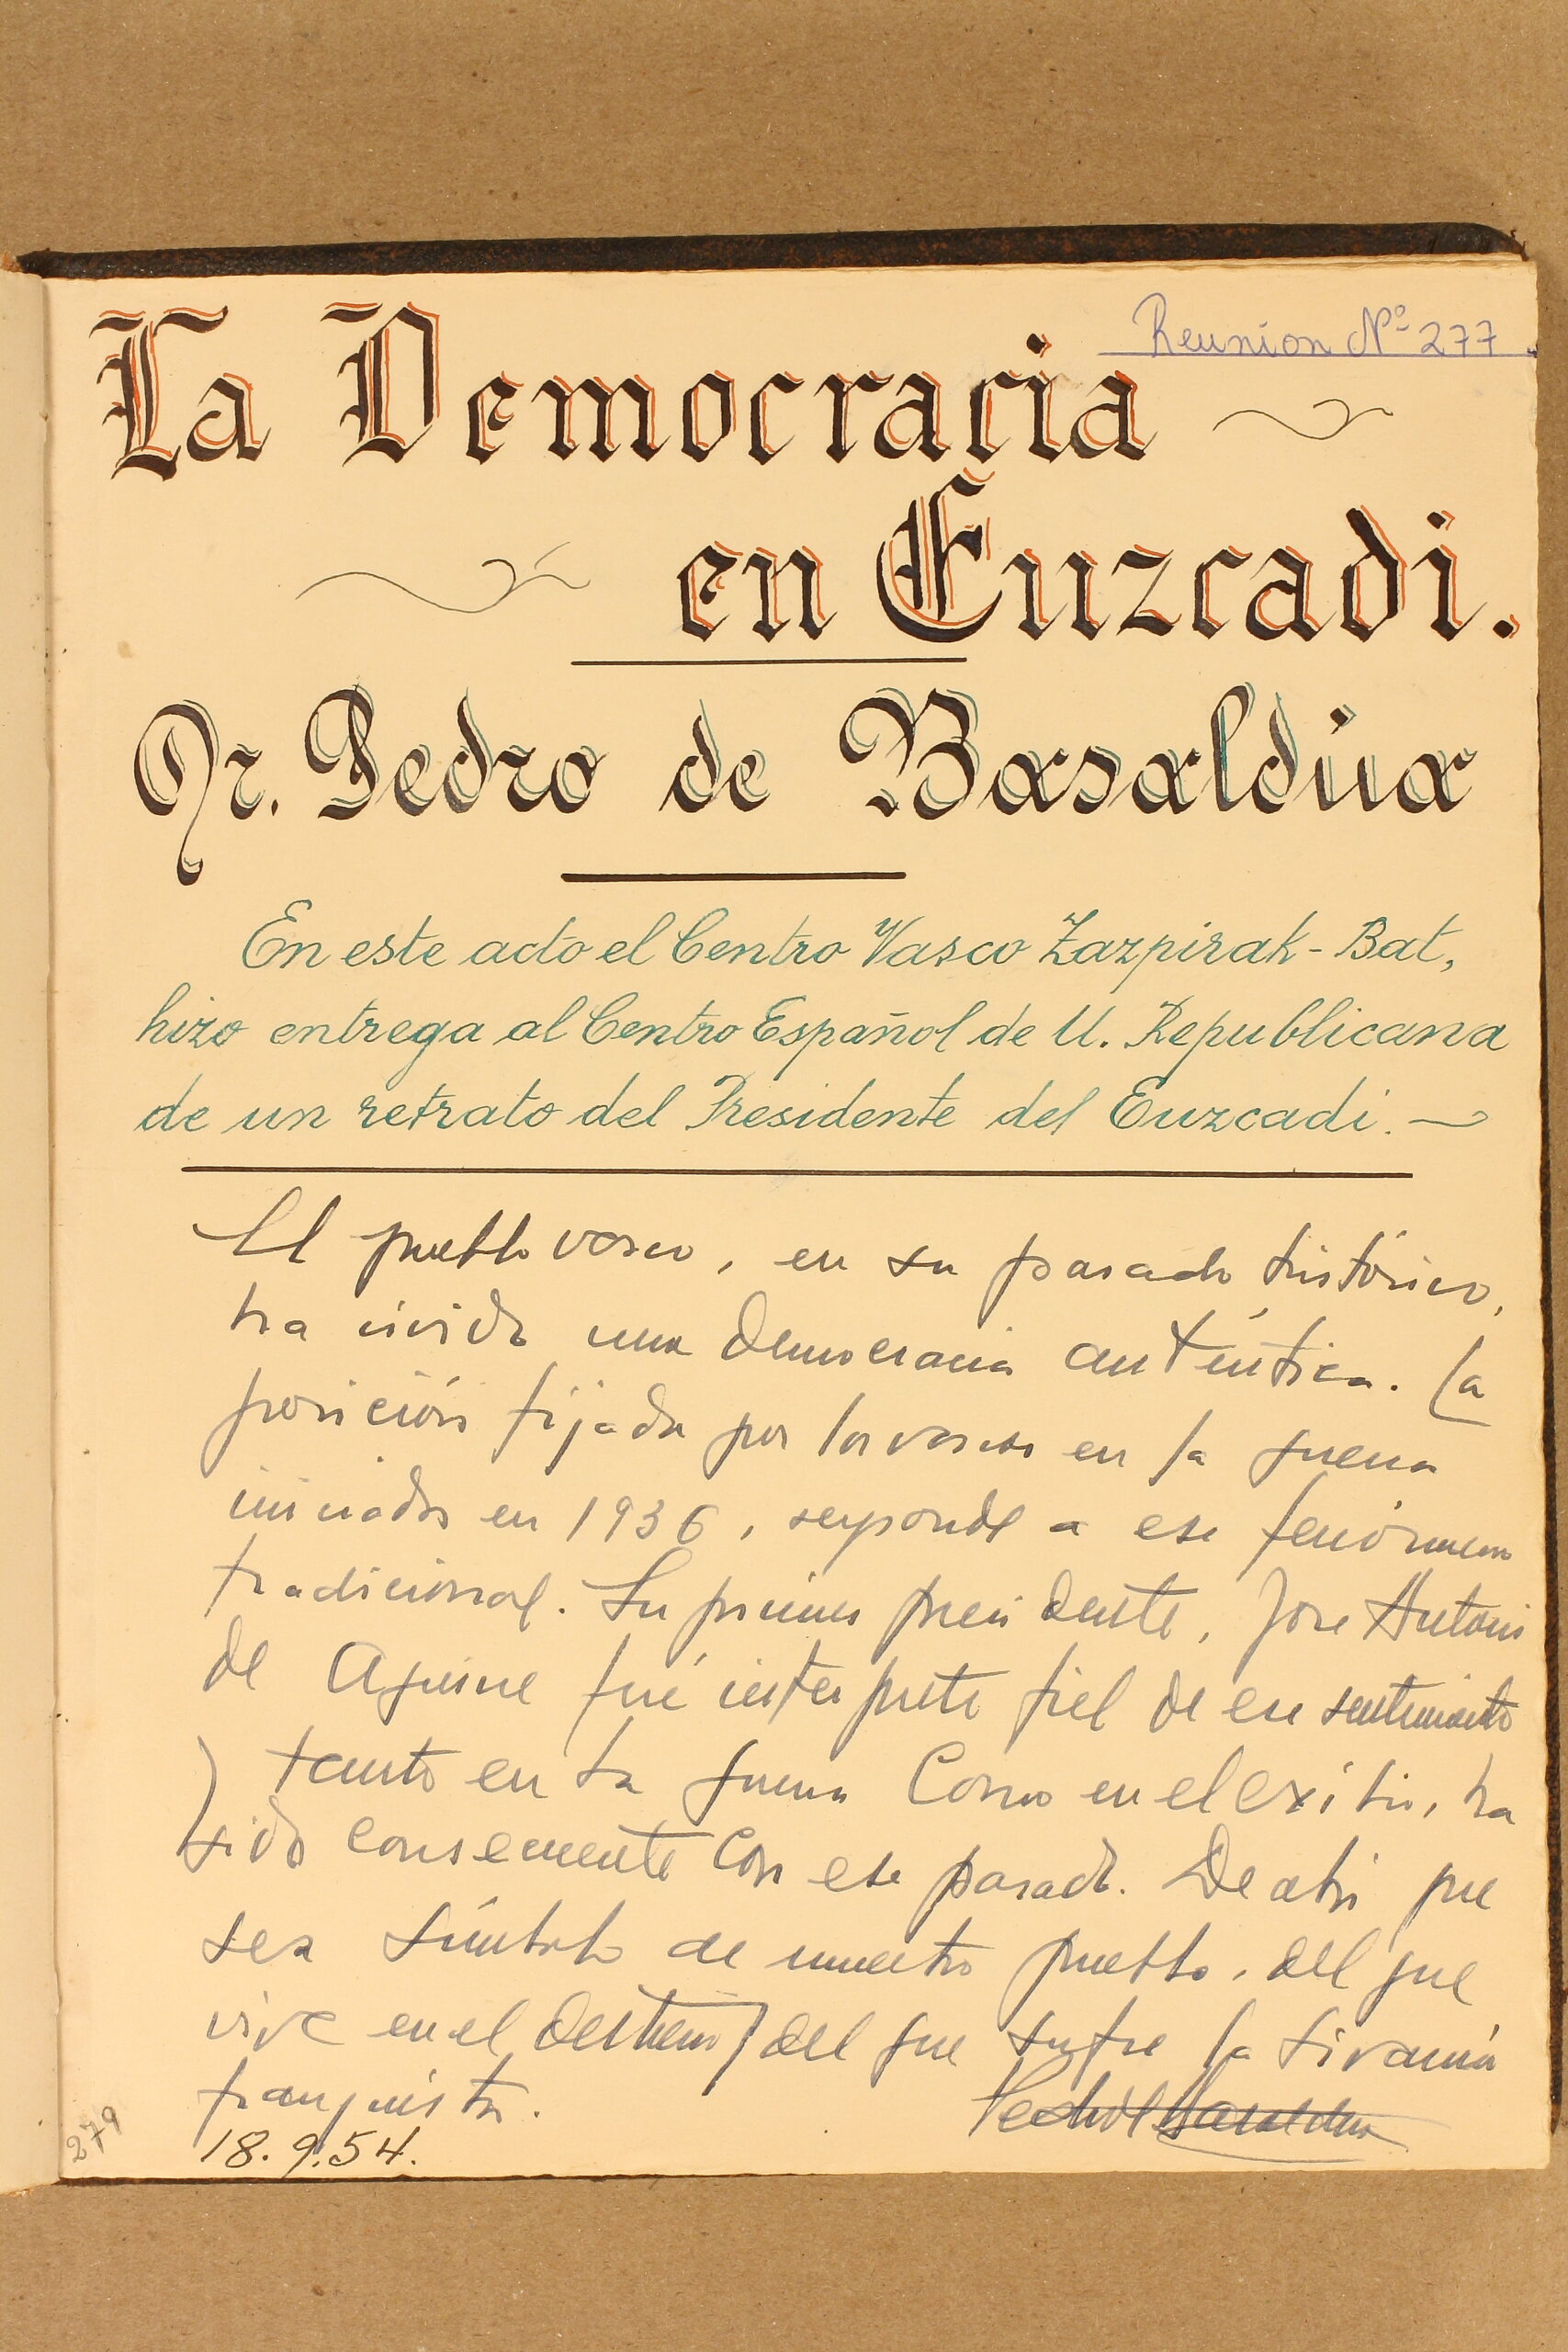 Reunion Nº 277.
La Democracia
en Euzcadi.
Dr. Pedro de Basaldúa
En este acto el Centro Vasco Zazpirak-Bat,
hizo entrega al Centro Español de U. Republicana
de un retrato del Presidente del Euzcadi.
El pueblo vasco, en su pasado histórico,
ha vivido una democracia auténtica. La
posición fijada por los vascos en la guerra
iniciada en 1936, responde a ese fenómeno
tradicional. Su primer presidente, Jose Antonio
de Aguirre fué intérprete fiel de ese sentimiento
y tanto en la guerra como en el exilio, ha
sido consecuente con ese pasado. De ahi que
sea símbolo de nuestro pueblo, del que
vive en el destierro y del que sufre la tiranía
franquista.
Pedro de Basaldua
18.9.54.
279